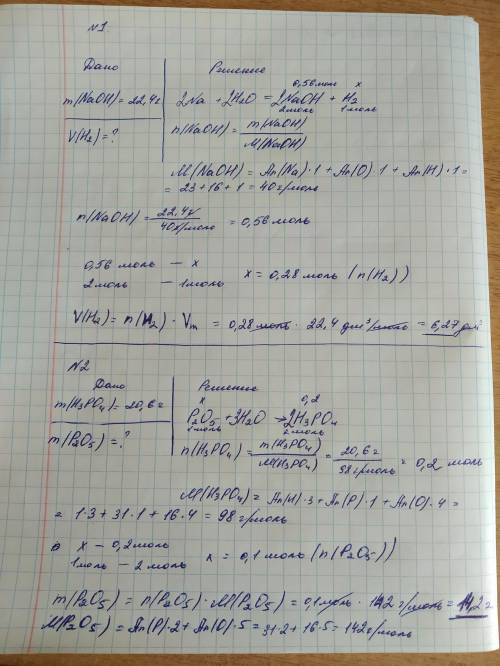 №1
Дано Решение
0,56 моль x
m(NaOH)=22,4г 2Na + 2H₂O = 2NaOH + H₂
2моль 1моль
V(H₂)=? n(NaOH)= m(NaOH)/M(NaOH)
M(NaOH) = Ar(Na)·1 + Ar(O)·1 + Ar(H)·1 =
= 23+16+1 = 40г/моль
n(NaOH)= 22,4г/40г/моль = 0,56 моль
0,56 моль – x x = 0,28 моль (n(H₂))
2моль – 1моль
V(H₂)= n(H₂) · Vm = 0,28 моль · 22,4 дм³/моль = 6,27 дм³
№2
Дано Решение
m(H₃PO₄)=20,6г x 0,2
P₂O₅+3H₂O → 2H₃PO₄
1моль 2моль
m(P₂O₅)=? n(H₃PO₄)= m(H₃PO₄)/M(H₃PO₄) = 20,6г/98г/моль = 0,2 моль
M(H₃PO₄)= Ar(H)·3+Ar(P)·1+Ar(O)·4=
= 1·3+31·1+16·4 = 98г/моль
x – 0,2моль x = 0,1 моль (n(P₂O₅))
1моль – 2 моль
m(P₂O₅) = n(P₂O₅)·M(P₂O₅) = 0,1моль · 142 г/моль = 14,2г
M(P₂O₅) = Ar(P)·2+Ar(O)·5=31·2+16·5=142г/моль